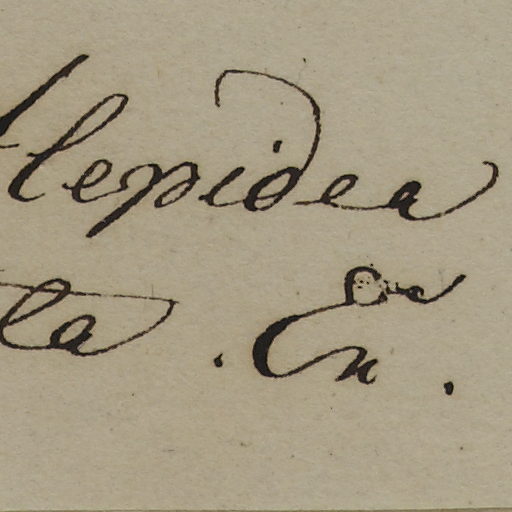 lepidea
la. En.